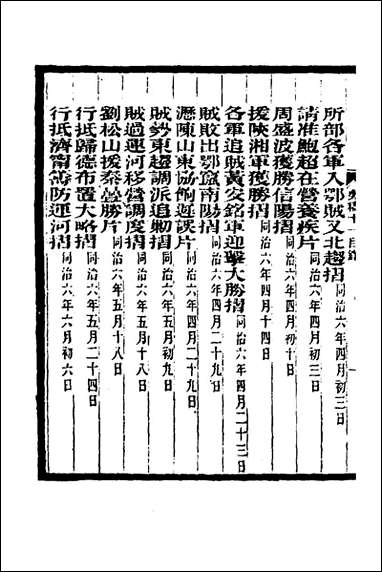 所部各軍入鄂賊又北趨摺同治六年四月初三日
請准鮑超在營養疾片同治六年四月初三日
周盛波獲勝信陽摺同治六年四月初十日
援陝湘軍獲勝摺同治六年四月十四日
各軍追賊黃安銘軍迎擊大勝摺同治六年四月二十三日
賊敗出鄂竄南陽摺同治六年四月二十九日
瀝陳山東協餉遲誤片同治六年四月二十九日
賊勢東趨調派追勦摺同治六年五月初九日
賊過運河移營調度摺同治六年五月十八日
劉松山援秦疊勝片同治六年五月十八日
行抵歸德布置大略摺同治六年五月二十四日
行抵濟甯籌防運河摺同治六年六月初六日